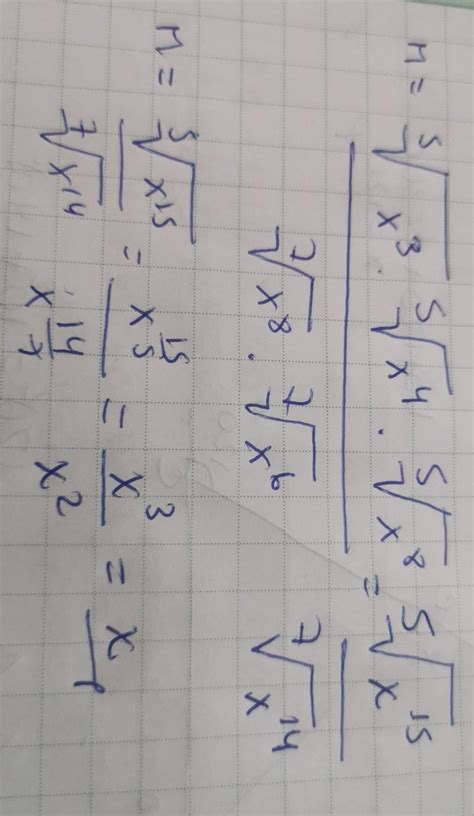 M = ⁵√x³ · ⁵√x⁴ · ⁵√x⁸ / ⁷√x⁸ · ⁷√x⁶ = ⁵√x¹⁵ / ⁷√x¹⁴
M = ⁵√x¹⁵ / ⁷√x¹⁴ = x^(15/5) / x^(14/7) = x³ / x² = x